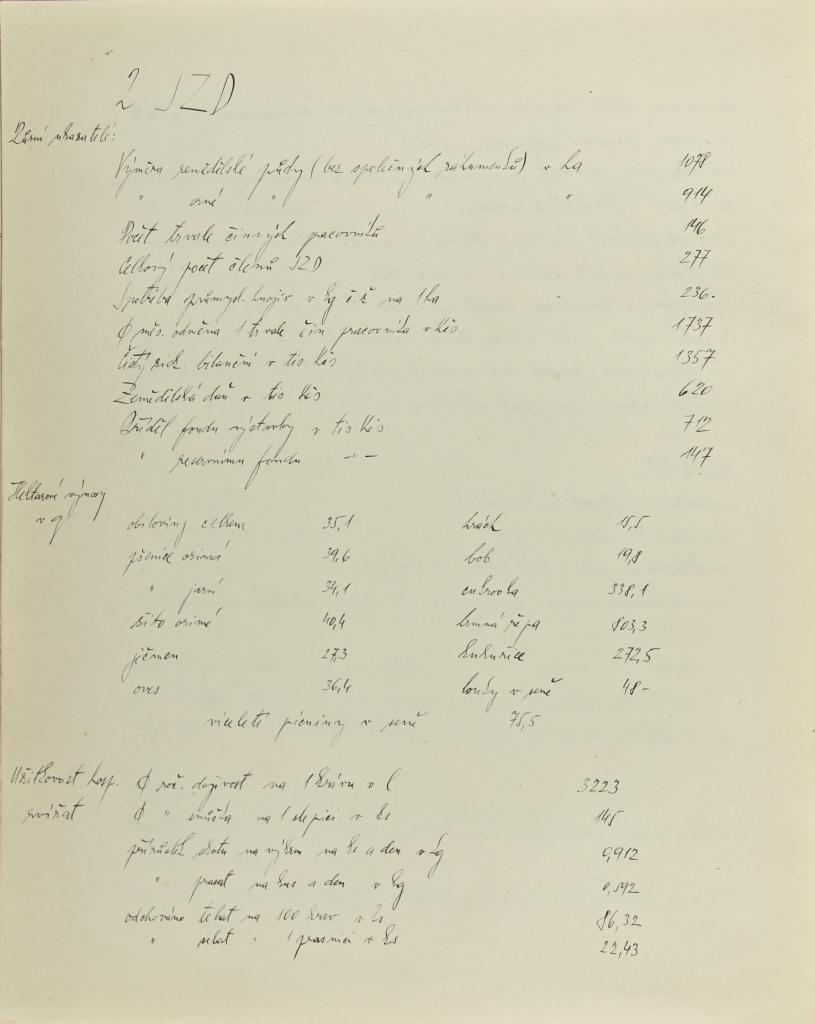 2. JZD
Různí ukazatelé:
Výměra zemědělské půdy (bez společných záhumenků) v ha 1078
" orné " " " 914
Počet trvale činných pracovníků 146
Celkový počet členů JZD 277
Spotřeba průmysl. hnojiv v kg č.ž na 1 ha 236.
Ø měs. odměna 1 trvale čin. pracovníka v Kčs 1737
Čistý zisk bilanční v tis Kčs 1357
Zemědělská daň v tis Kčs 620
Příděl fondu výstavby v tis Kčs 712
" reservnímu fondu -"- 147
Hektarové výnosy
v q
obiloviny celkem 35,1 hrách 15,5
pšenice ozimá 39,6 bob 19,8
" jarní 34,1 cukrovka 338,1
žito ozimé 40,4 krmná řepa 803,3
ječmen 27,3 kukuřice 272,5
oves 36,4 louky v seně 48-
víceleté pícniny v seně 75,5
Užitkovost hosp. Ø roč. dojivost na 1 krávu v l 3223
zvířat Ø " snůška na 1 slepici v ks 145
přírůstek skotu na výkrm na ks a den v kg 0,912
" prasat na kus a den v kg 0,592
odchováno telat na 100 krav v ks 86,32
" selat " 1 prasnici v ks 22,43